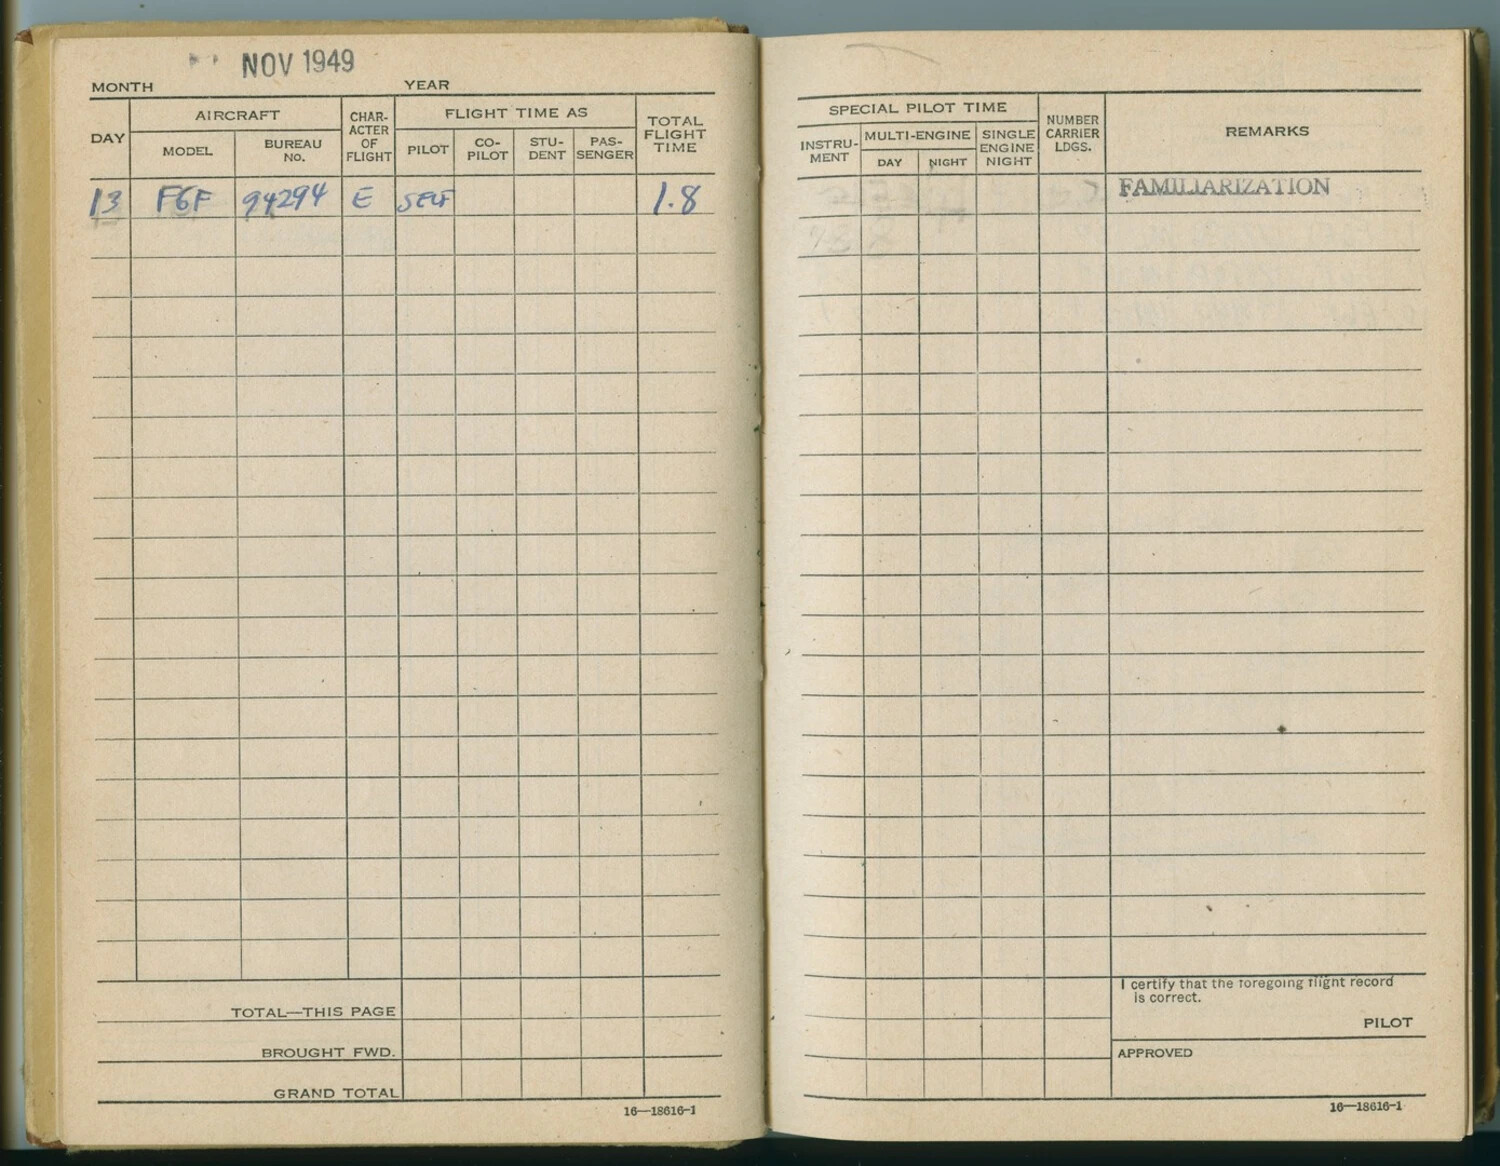 NOV 1949
MONTH YEAR
DAY AIRCRAFT CHAR-ACTER OF FLIGHT FLIGHT TIME AS TOTAL FLIGHT TIME
MODEL BUREAU NO. PILOT CO-PILOT STU-DENT PAS-SENGER
13 F6F 94294 E SELF 1.8
TOTAL—THIS PAGE
BROUGHT FWD.
GRAND TOTAL
16—18616-1
SPECIAL PILOT TIME NUMBER CARRIER LDGS. REMARKS
INSTRU-MENT MULTI-ENGINE SINGLE ENGINE NIGHT
DAY NIGHT
FAMILIARIZATION
I certify that the foregoing flight record
is correct.
PILOT
APPROVED
16—18616-1